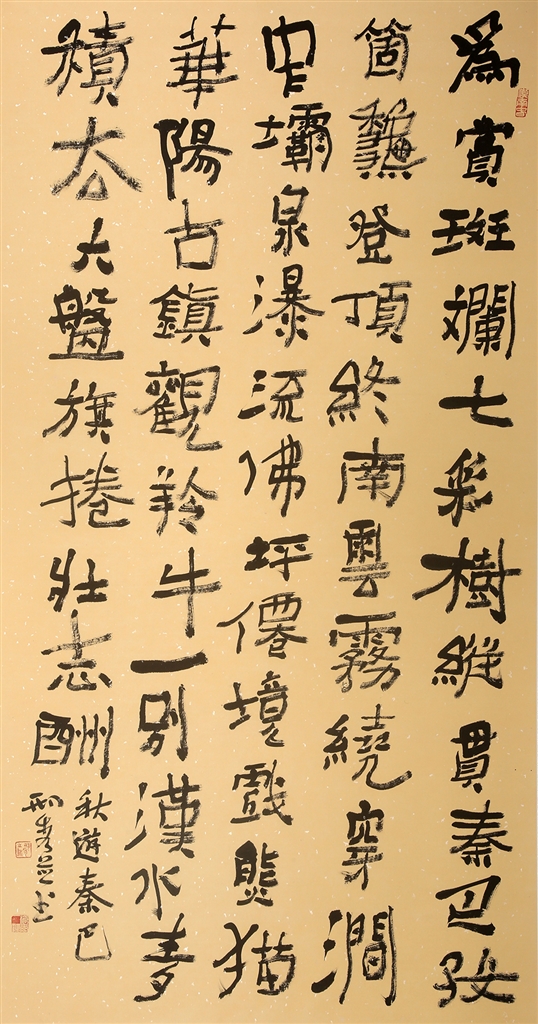 為賞斑斕七彩樹縱貫秦巴
箇龝登頂終南雲霧繞穿澗
壩泉瀑流佛坪僊境戲熊猫
華陽古鎮觀羚牛一別漢水
積大盤旗捲壯志酬
秋遊秦巴